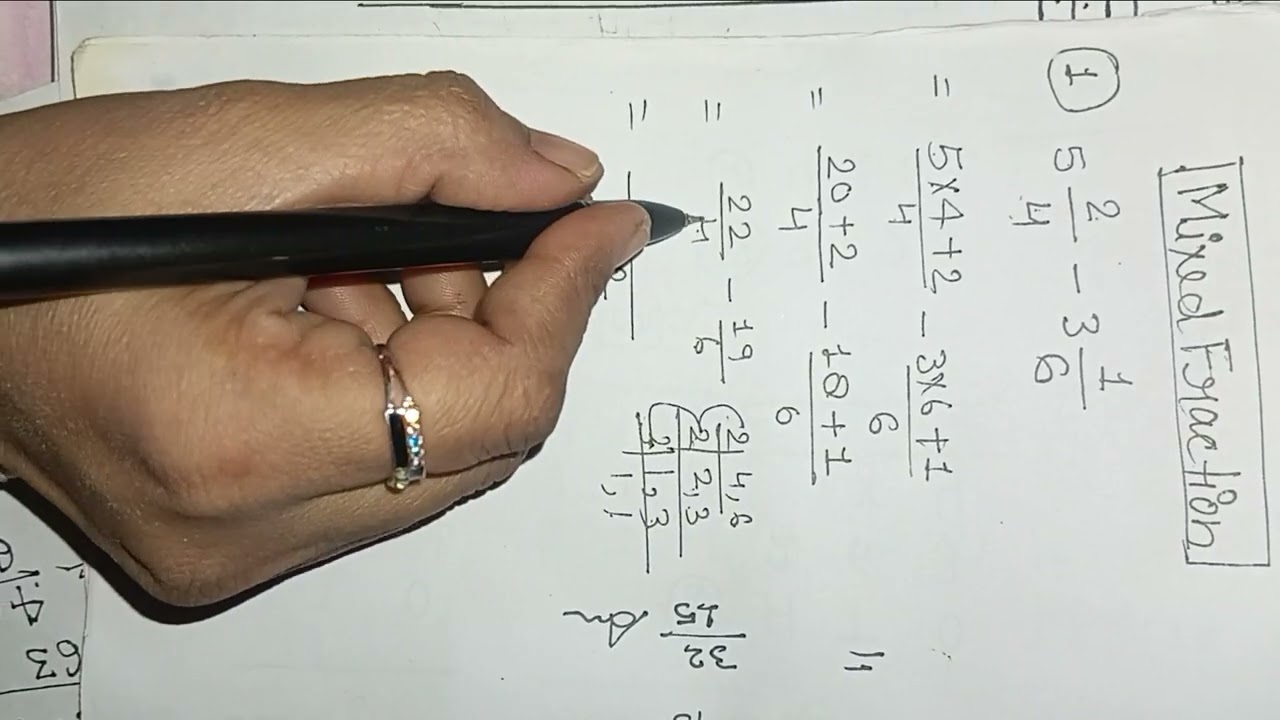 Mixed Fraction
① 5 2/4 - 3 1/6
= 5×4+2/4 - 3×6+1/6
= 20+2/4 - 18+1/6
= 22/4 - 19/6
=
2 | 4, 6
2 | 2, 3
3 | 1, 3
1, 1
32/25 Ans
=